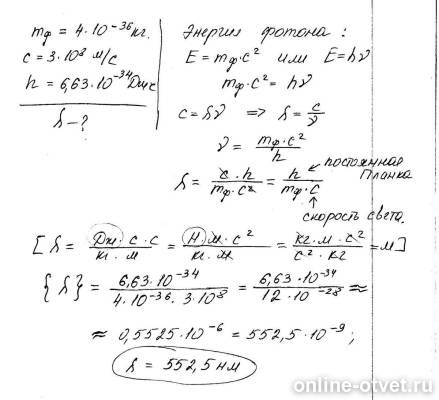 mф = 4·10⁻³⁶ кг.
c = 3·10⁸ м/с
h = 6,63·10⁻³⁴ Дж·с
λ - ?
Энергия фотона :
E = mф·c² или E = hν
mф·c² = hν
c = λν => λ = c/ν
ν = mф·c²/h
λ = c·h/mф·c² = h/mф·c
постоянная
Планка
скорость света.
[λ = Дж·с·с/кг·м = Н·м·с²/кг·м = кг·м·с²/с²·кг = м]
{λ} = 6,63·10⁻³⁴/4·10⁻³⁶·3·10⁸ = 6,63·10⁻³⁴/12·10⁻²⁸ ≈
≈ 0,5525·10⁻⁶ = 552,5·10⁻⁹;
λ = 552,5 нм
online-otvet.ru